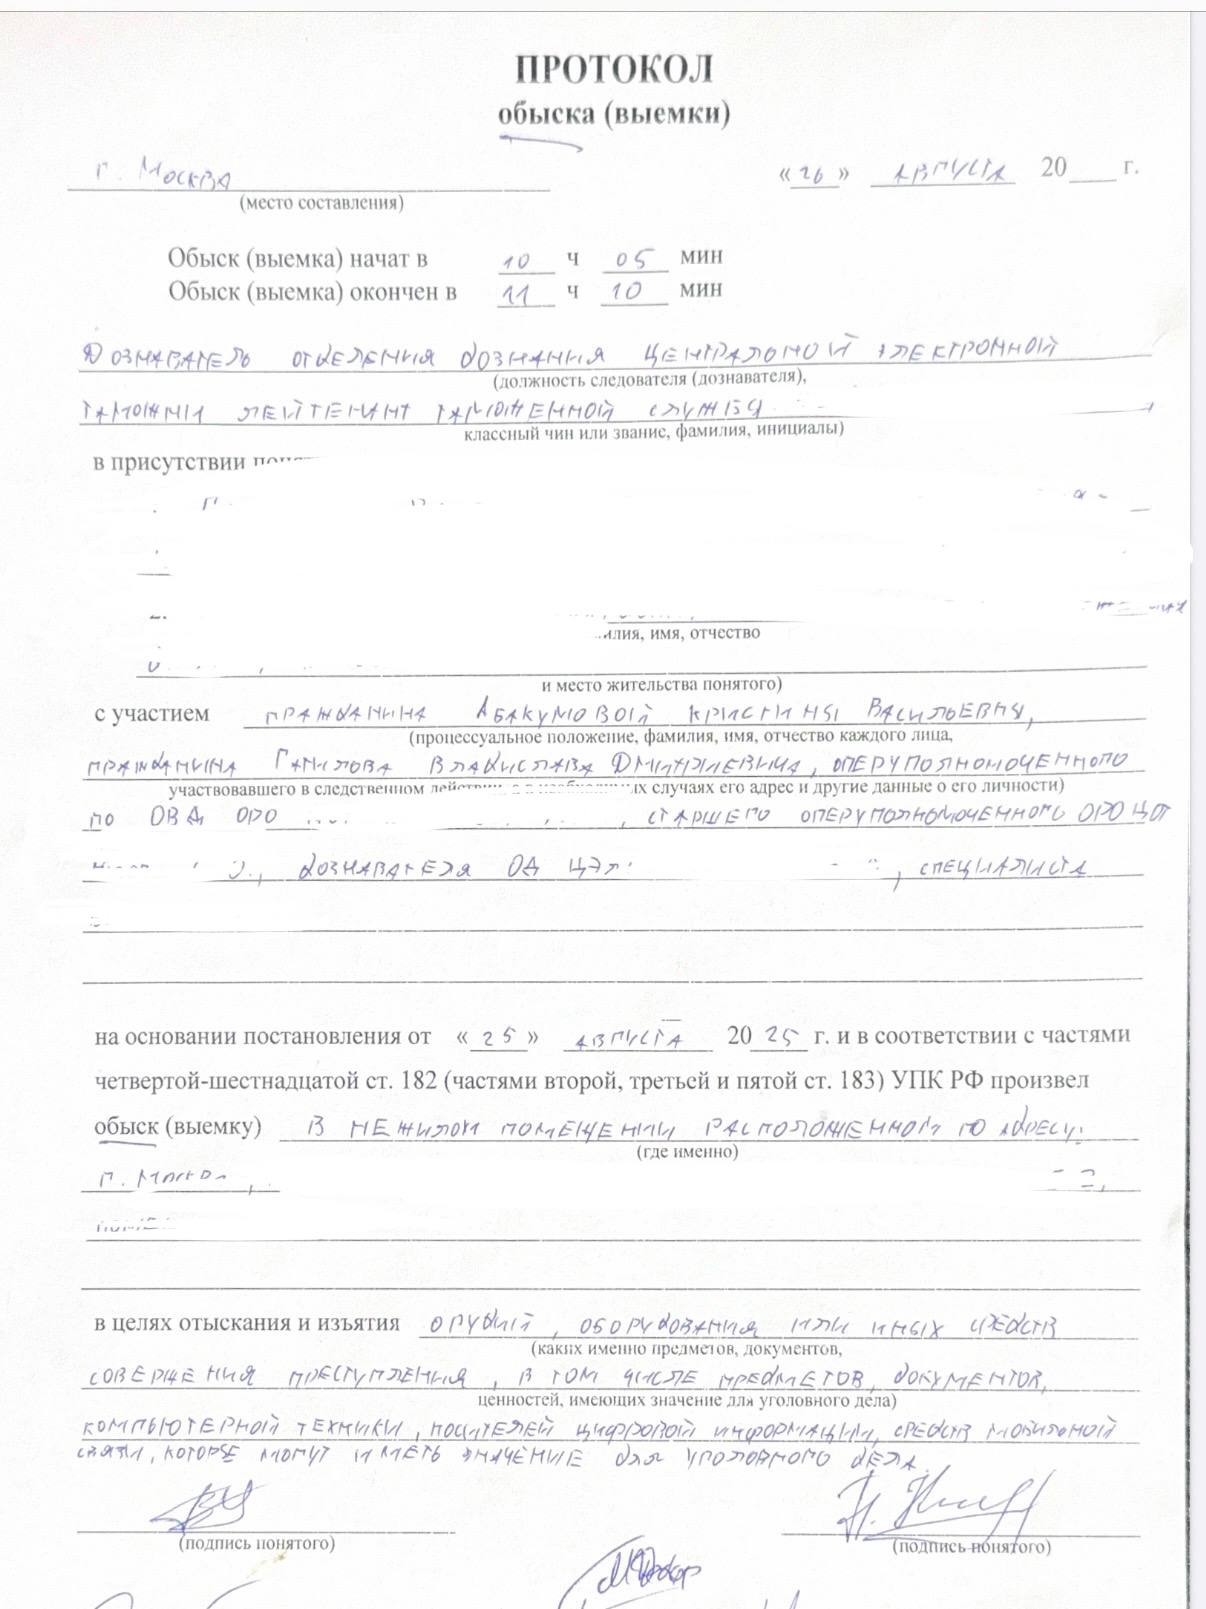 ПРОТОКОЛ
обыска (выемки)
г. Москва «26» августа 20___ г.
(место составления)
Обыск (выемка) начат в 10 ч 05 мин
Обыск (выемка) окончен в 11 ч 10 мин
Дознаватель отделения дознания Центральной электронной
(должность следователя (дознавателя),
таможни лейтенант таможенной службы
классный чин или звание, фамилия, инициалы)
в присутствии
имя, отчество
и место жительства понятого)
с участием гражданина Абакумовой Кристины Васильевны,
(процессуальное положение, фамилия, имя, отчество каждого лица,
гражданина Гамилова Владислава Дмитриевича, оперуполномоченного
участвовавшего в следственном случаях его адрес и другие данные о его личности)
по ОВД ОРО , старшего оперуполномоченного ОРО ЦОТ
, дознавателя ОД ЦЭТ , специалиста
на основании постановления от «25» августа 2025 г. и в соответствии с частями
четвертой-шестнадцатой ст. 182 (частями второй, третьей и пятой ст. 183) УПК РФ произвел
обыск (выемку) в нежилом помещении расположенном по адресу:
(где именно)
г.
в целях отыскания и изъятия орудий, оборудования или иных средств
(каких именно предметов, документов,
совершения преступления, в том числе предметов, документов,
ценностей, имеющих значение для уголовного дела)
компьютерной техники, носителей цифровой информации, средств мобильной
связи, которые могут иметь значение для уголовного дела.
(подпись понятого) (подпись понятого)